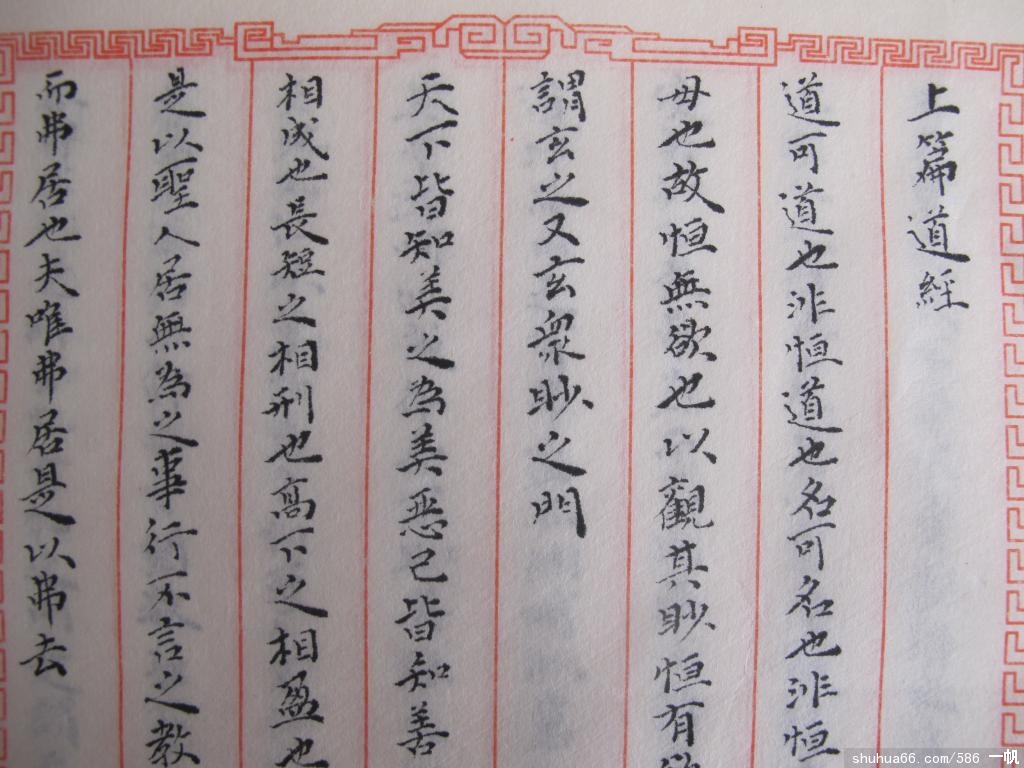 上篇道經
道可道也非恒道也名可名也非恒
母也故恒無欲也以觀其眇恒有欲
謂玄之又玄衆眇之門
天下皆知美之為美惡已皆知善
相成也長短之相刑也高下之相盈也
是以聖人居無為之事行不言之教
而弗居也夫唯弗居是以弗去
shuhua66.com/586 一帆